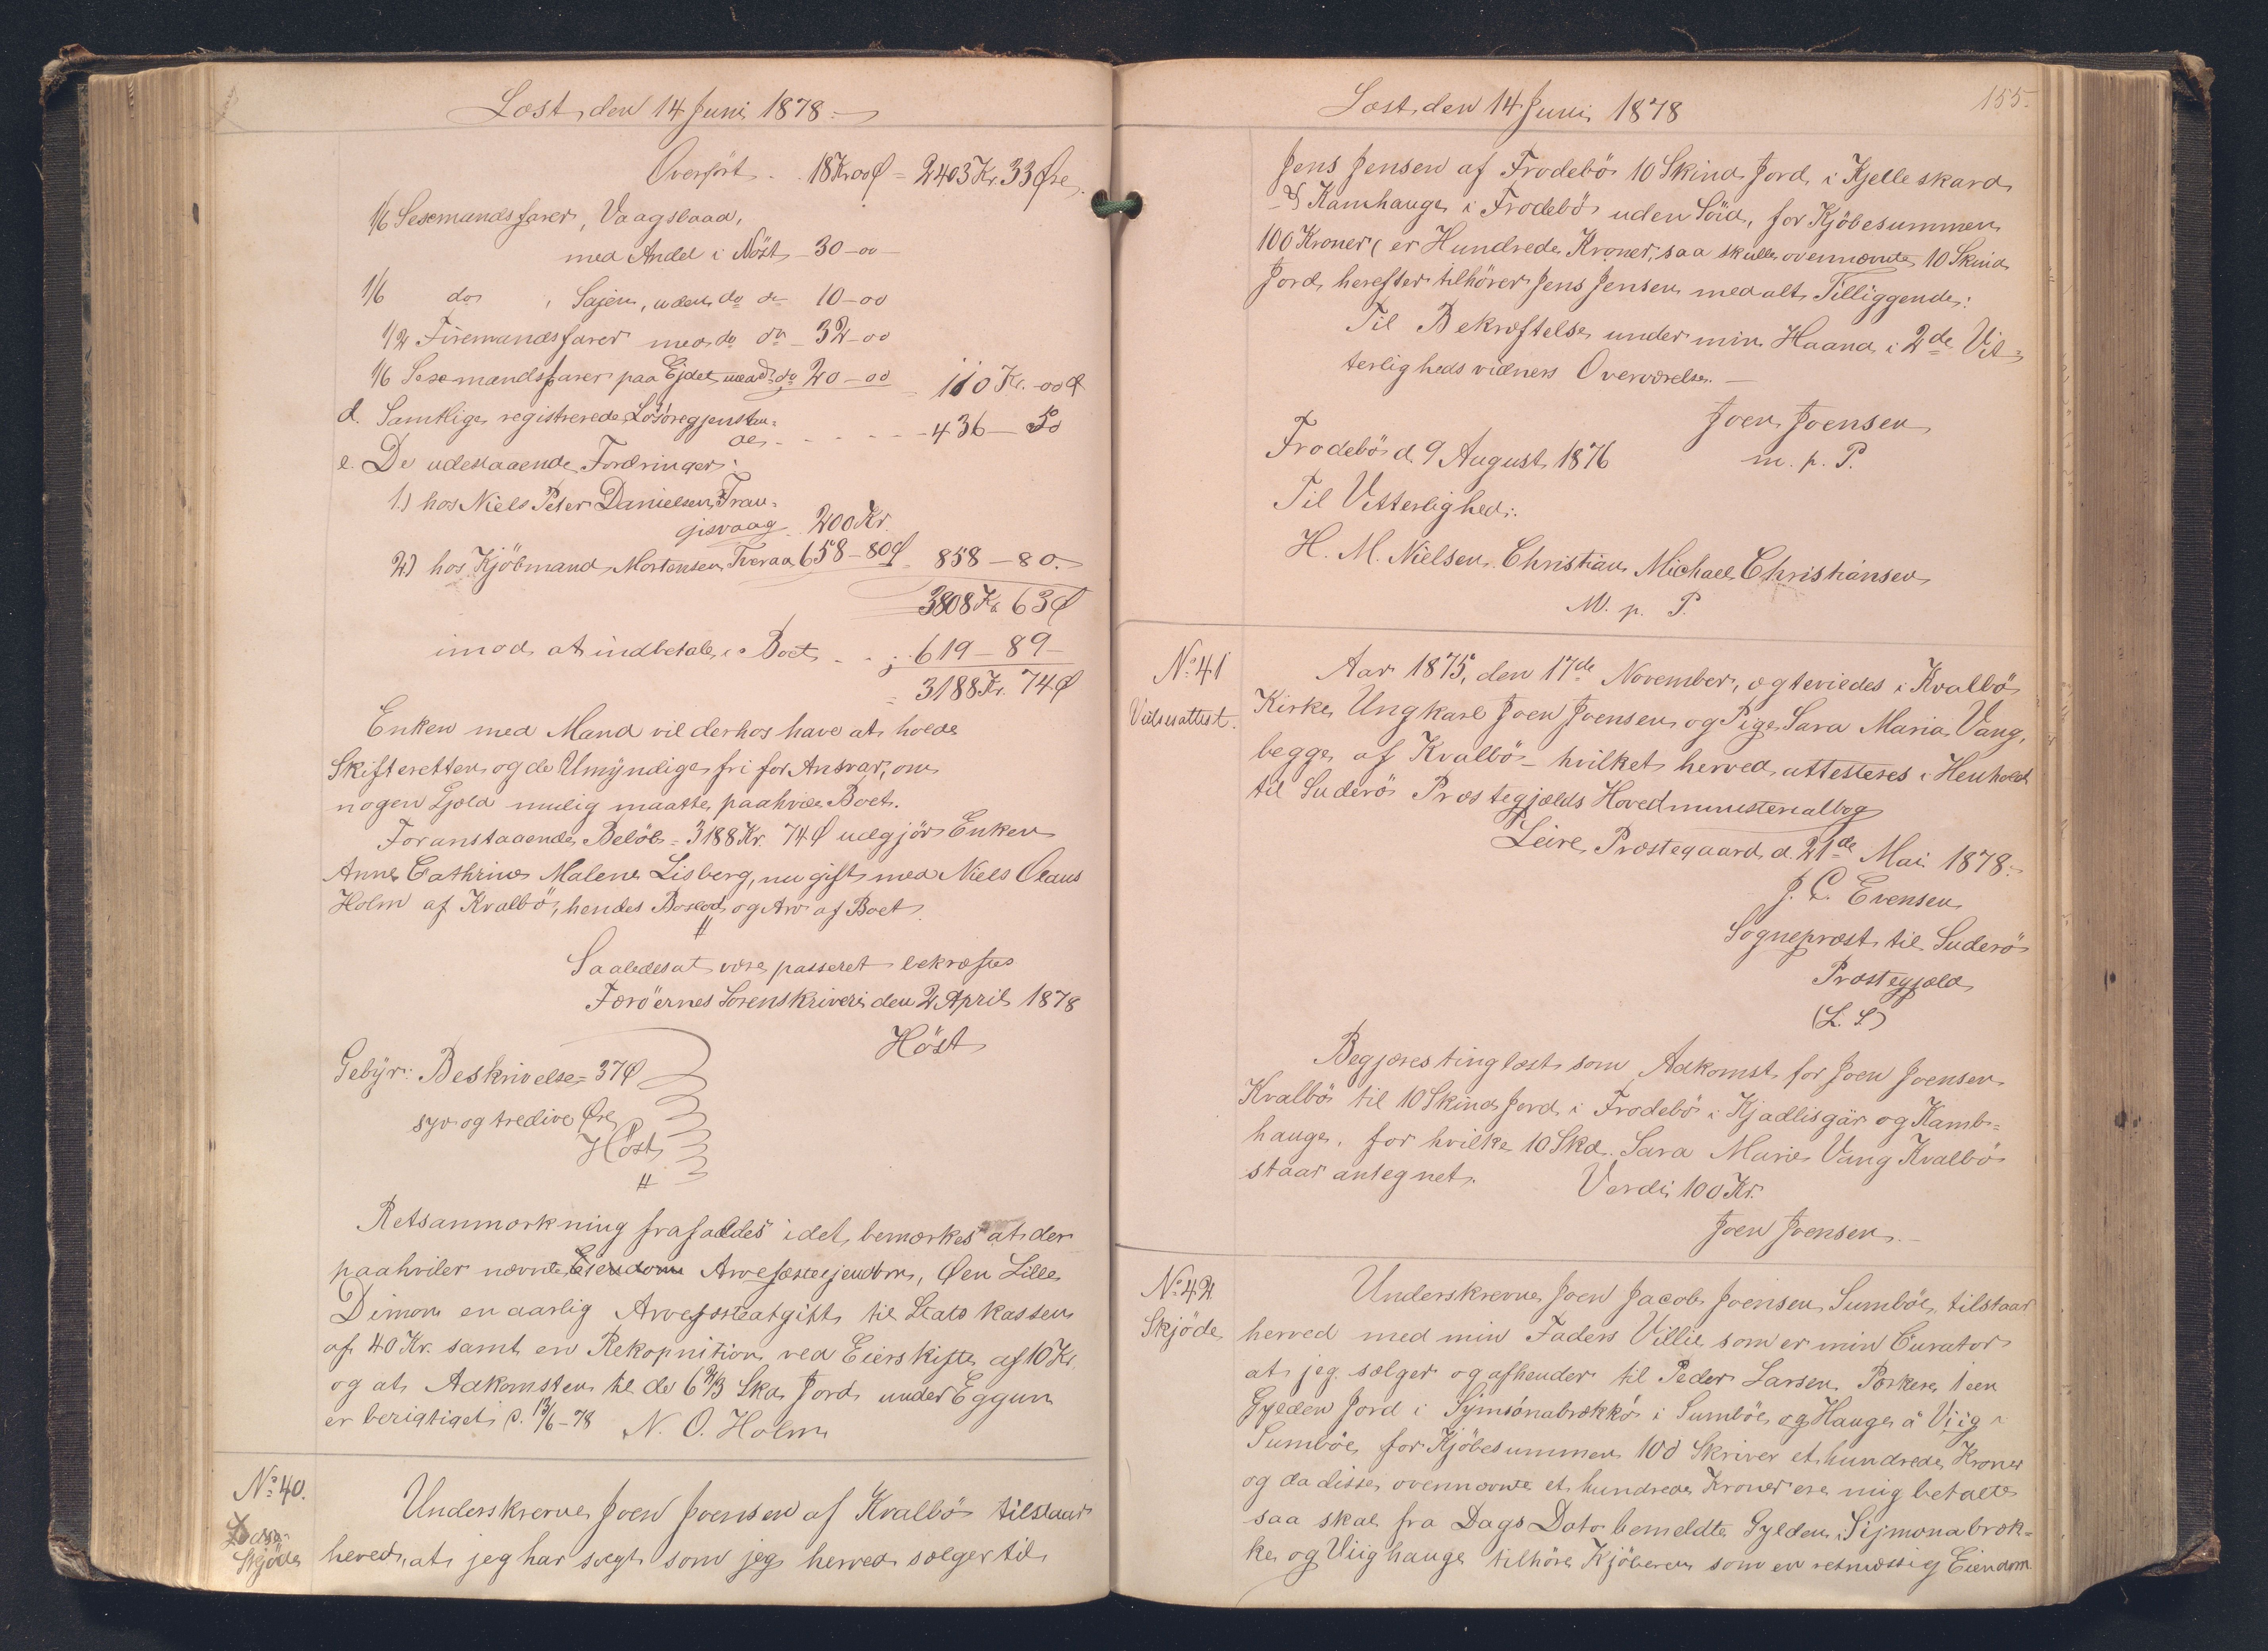 Læst den 14 Juni 1878.
Overført . . 18Kr00Ø = 2403 Kr. 33 Øre
1/6 Sexmandsfarer, Vaagsbaad,
med Andel i Nöst – 30–00–
1/6 do , Sajen, uden do do 10–00
1/2 Firemandsfarer med do do – 32–00
1/6 Sexmandsfarer paa Ejdet med do 20–00 = 110 Kr.–00 Ø
d. Samtlige registrerede Lösöregjenstan=
de . . . . . – 436 – 50
e. De udestaaende Fordringer:
1.) hos Niels Peter Danielsen, Tran=
gisvaag 200 Kr
2) hos Kjöbmand Mortensen, Tveraa 658–80Ø = 858–80.
3808 Kr 63Ø
imod at indbetale i Boet . . . 619–89–
= 3188 Kr. 74Ø
Enken med Mand vil derhos have at holde
Skifteretten og de Umyndige fri for Ansvar, om
nogen Gjæld mulig maatte paahvile Boet.
Foranstaaende Belöb = 3188 Kr. 74 Ø udgjör Enken
Anne Cathrine Malene Lisberg, nu gift med Niels Olaus
Holm af Kvalbö, hendes Boslod og Arv af Boet.
"
Saaledes at være passeret bekræftes
Færöernes Sorenskriveri den 2 April 1878
Höst
Gebyr: Beskrivelse = 37Ø
syv og tredive Øre
Höst
"
Retsanmærkning frafaldes idet bemærkes at der
paahviler nævnte Eiendom Arvefæsteejendom, Øen Lille
Dimon en aarlig Arvefæsteafgift til Statskassen
af 40 Kr. samt en Rekognition ved Eierskifte af 10 Kr.
og at Adkomsten til de 6 2/3 Skd. Jord under Eggum
er berigtiget. d. 13/6–78 N. O. Holm
No. 40.
Skjöde
Underskrevne Joen Joensen af Kvalbö tilstaar
herved, at jeg har solgt som jeg herved sælger til
Læst den 14 Juni 1878
155.
Jens Jensen af Frodebö 10 Skind Jord i Kjelleskard
& Kamhauge i Frodebö uden Söid, for Kjöbesummen
100 Kroner er Hundrede Kroner, saa skulle ovennævnte 10 Skind
Jord herefter tilhöre Jens Jensen med alt Tilliggende:
Til Bekræftelse under min Haand i 2de Vit=
terlighedsvidners Overværelse. –
Joen Joensen
m. p. P.
Frodebö d. 9 August 1876
Til Vitterlighed:
H. M. Nielsen. Christian Michael Christiansen
M. p. P.
No. 41
Vielsesattest.
Aar 1875, den 17de November, ægteviedes i Kvalbö
Kirke Ungkarl Joen Joensen og Pige Sara Maria Vang,
begge af Kvalbö – hvilket herved attesteres i Henhold
til Suderö Præstegjælds Hovedministerialbog
Leire Præstegaard d. 21de Mai 1878.
J. C. Evensen
Sognepræst til Suderö
Præstegjæld
(L. S.)
Begjæres tinglæst som Adkomst for Joen Joensen
Kvalbö til 10 Skind Jord i Frodebö i Kjadlisgär og Kamb=
hauge, for hvilke 10 Skd. Sara Marie Vang Kvalbö
staar antegnet. Værdi 100 Kr.
Joen Joensen. –
No. 42
Skjöde
Underskrevne Joen Jacob Joensen, Sumböe, tilstaar
herved med min Faders Villie som er min Curator
at jeg sælger og afhender til Peder Larsen Porkere 1 een
Gylden Jord i Symsónabrækkó i Sumböe og Hauge á Viig i
Sumböe for Kjöbesummen 100 Skriver et hundrede Kroner
og da disse ovennævnte et hundrede Kroner ere mig betalte
saa skal fra Dags Dato bemeldte Gylden i Sijmonabræk=
ke og Viighauge tilhöre Kjöberen som en retmæssig Eiendom